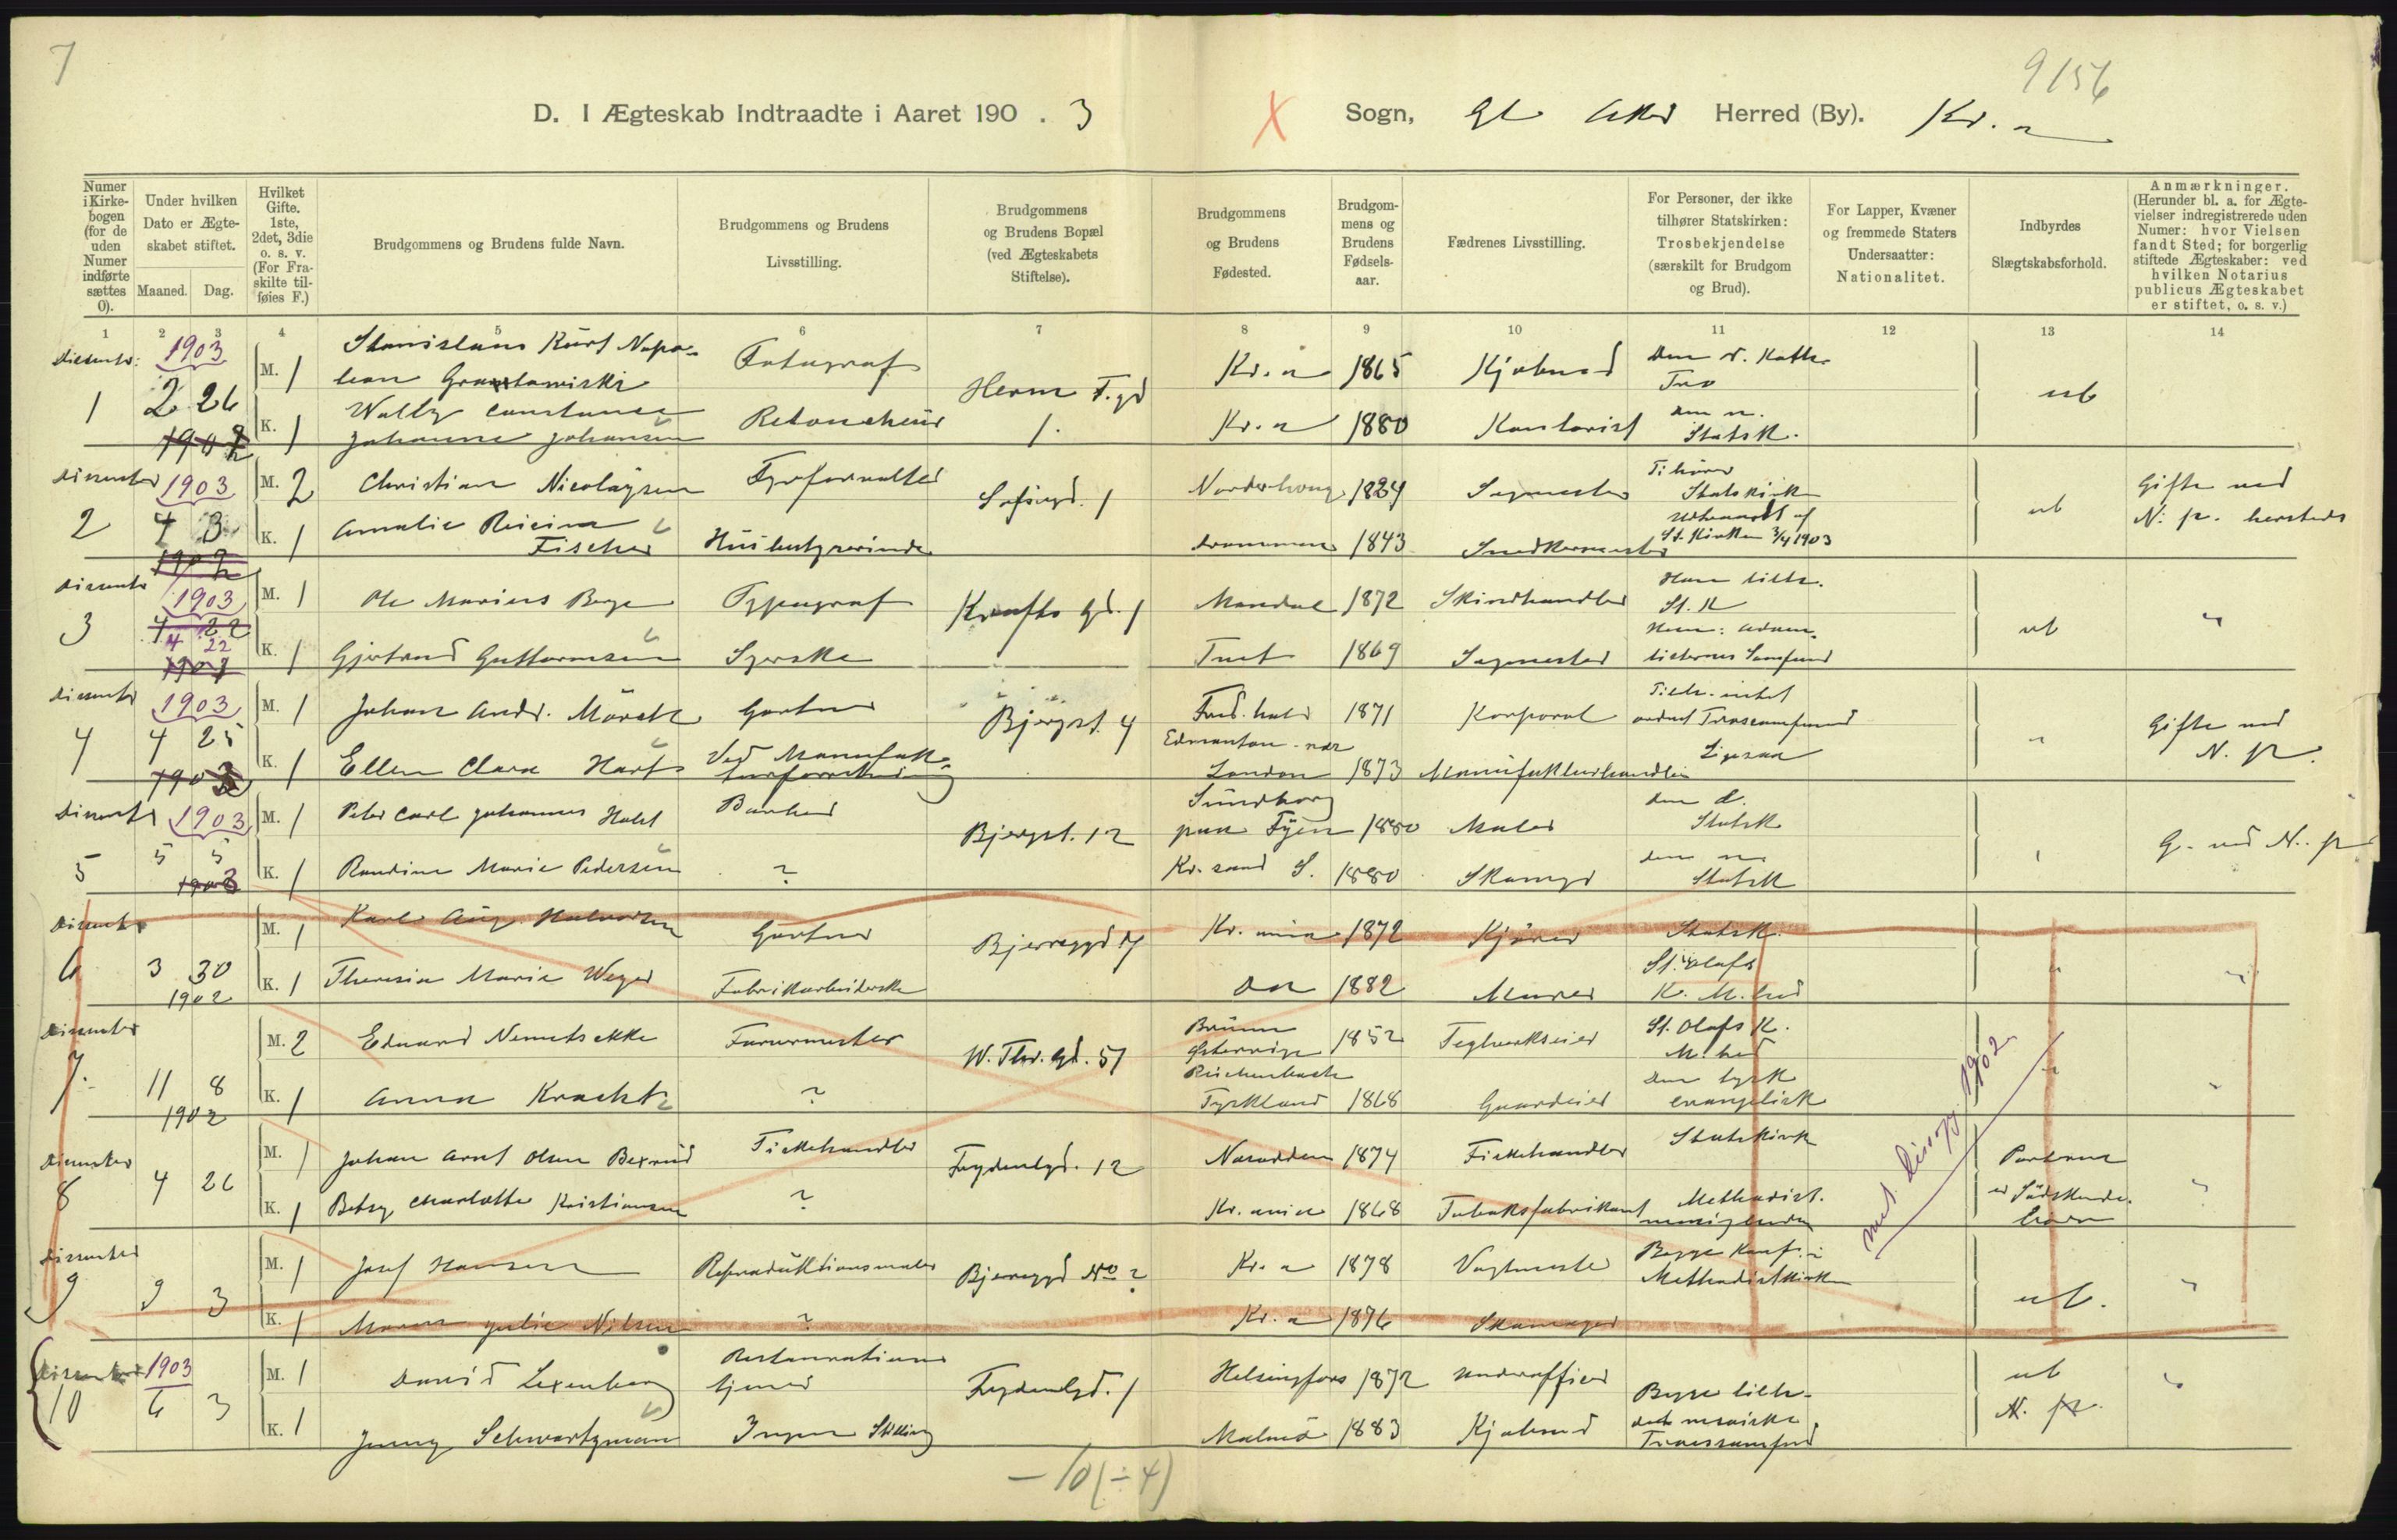 7
9156
D. I Ægteskab Indtraadte i Aaret 190 . 3
X Sogn, Gl Aker Herred (By). Kr. a
Numer i Kirke-bogen (for de uden Numer indførte sættes 0).
Under hvilken Dato er Ægte-skabet stiftet.
Maaned. Dag.
Hvilket Gifte. 1ste, 2det, 3die o. s. v. (For Fra-skilte til-føies F.)
Brudgommens og Brudens fulde Navn.
Brudgommens og Brudens Livsstilling.
Brudgommens og Brudens Bopæl (ved Ægteskabets Stiftelse).
Brudgommens og Brudens Fødested.
Brudgom-mens og Brudens Fødsels-aar.
Fædrenes Livsstilling.
For Personer, der ikke tilhører Statskirken: Trosbekjendelse (særskilt for Brudgom og Brud).
For Lapper, Kvæner og fremmede Staters Undersaatter: Nationalitet.
Indbyrdes Slægtskabsforhold.
Anmærkninger. (Herunder bl. a. for Ægte-vielser indregistrerede uden Numer: hvor Vielsen fandt Sted; for borgerlig stiftede Ægteskaber: ved hvilken Notarius publicus Ægteskabet er stiftet, o. s. v.)
1 2 3 4 5 6 7 8 9 10 11 12 13 14
Dissenter: 1903
M. 1 Stanislaus Kurt Napo-
leon Fotograf Kr. a 1865 Kjøbmd Den r. Kath.
Tro
1 2 26 Herm F. gd 1. ub
K. 1 Wally Constance
Johanne Johansen Retoucheur Kr. a 1880 Kontorist den n.
Statsk.
Dissenter 1903
M. 2 Christian Nicolaysen Fyrforvalter Sofiegd. 1 Norderhoug 1834 Sagmester Tilhører
Statskirk
2 4 3 ub Gifte ved
N: p. hersteds
K. 1 Amalie
Fischer Husbestyrerinde Drammen 1843 Snedkermester Udtraadt af
St. Kirken 3/4 1903
Dissenter 1903
M. 1 Ole Marius Berge Typograf Krafts gd. 1 Mandal 1872 Skindhandler Han tilh.
St. K
3 4 22 ub "
4 22
K. 1 Gjertrud Guttormsen Syerske Tust 1869 Sagmester Hun: Adven-
tisternes Samfund
Dissenter 1903
M. 1 Johan Andr. Mörch Gartner Bjergst. 4 Fred. hald 1871 Korporal Tilh. intet
andet Trossamfund
4 4 25 " Gifte ved
N. p.
K. 1 Ellen Clara Hart Ved Manufak-
turforretning Edmonton nær
London 1873 Manufakturhandler Ligesaa
Dissenter 1903
M. 1 Peter Carl Johannes Holst Banked Bjergst. 12 Svendborg
paa Fyen 1880 Maler den d.
Statsk
5 5 5 G. ved N. p
K. 1 Randine Marie Pedersen ? Kr. sand S. 1880 Skomgr den n.
Statsk
Dissenter
M. 1 Karl Aug. Halvorsen Gartner Bjerregd 17 Kr. ania 1872 Kjører Statsk.
6 3 30
1902
K. 1 Theresia Marie Weger Fabrikarbeiderske Do 1882 Murer St. Olafs
K. M.hed
Dissenter
M. 2 Eduard Nemetschke Farvermester W. Thr. gd. 51 Brünn
Østerrige 1852 Teglverkseier St. Olafs K.
M.hed
7. 11 8
1902
K. 1 Anna Kracht ? Reichenbach
Tyskland 1868 Gaardeier Den tysk
evangelisk
Dissenter
M. 1 Johan Arnt Olsen Bexrud Fiskehandler Frydenlgd. 12 Nesodden 1874 Fiskehandler Statskirk
8 4 26 Parterne
er Sødskende-
børn
K. 1 Betsy Charlotte Kristiansen ? Kr. ania 1868 Tobaksfabrikant Methodist.
menigheden
Dissenter
M. 1 Josef Hansen Reproduktionsmaler Bjerregd No ? Kr. a 1878 Vagtmester Begge Konf. i
Methodistkirken
9 9 3 ub. "
K. 1 Maren Julie Nilsen ? Kr. a 1876 Skomager
1902
Dissenter 1903
M. 1 David Lexenberg Restaurations
tjener Frydenlgd. 1 Helsingfors 1872 Underofficer Begge tilh.
10 6 3 ub
N. p.
K. 1 Jenny Schwartzman Ingen Stilling Malmö 1883 Kjøbmd det mosaiske
Trossamfund
– 10 (÷ 4)